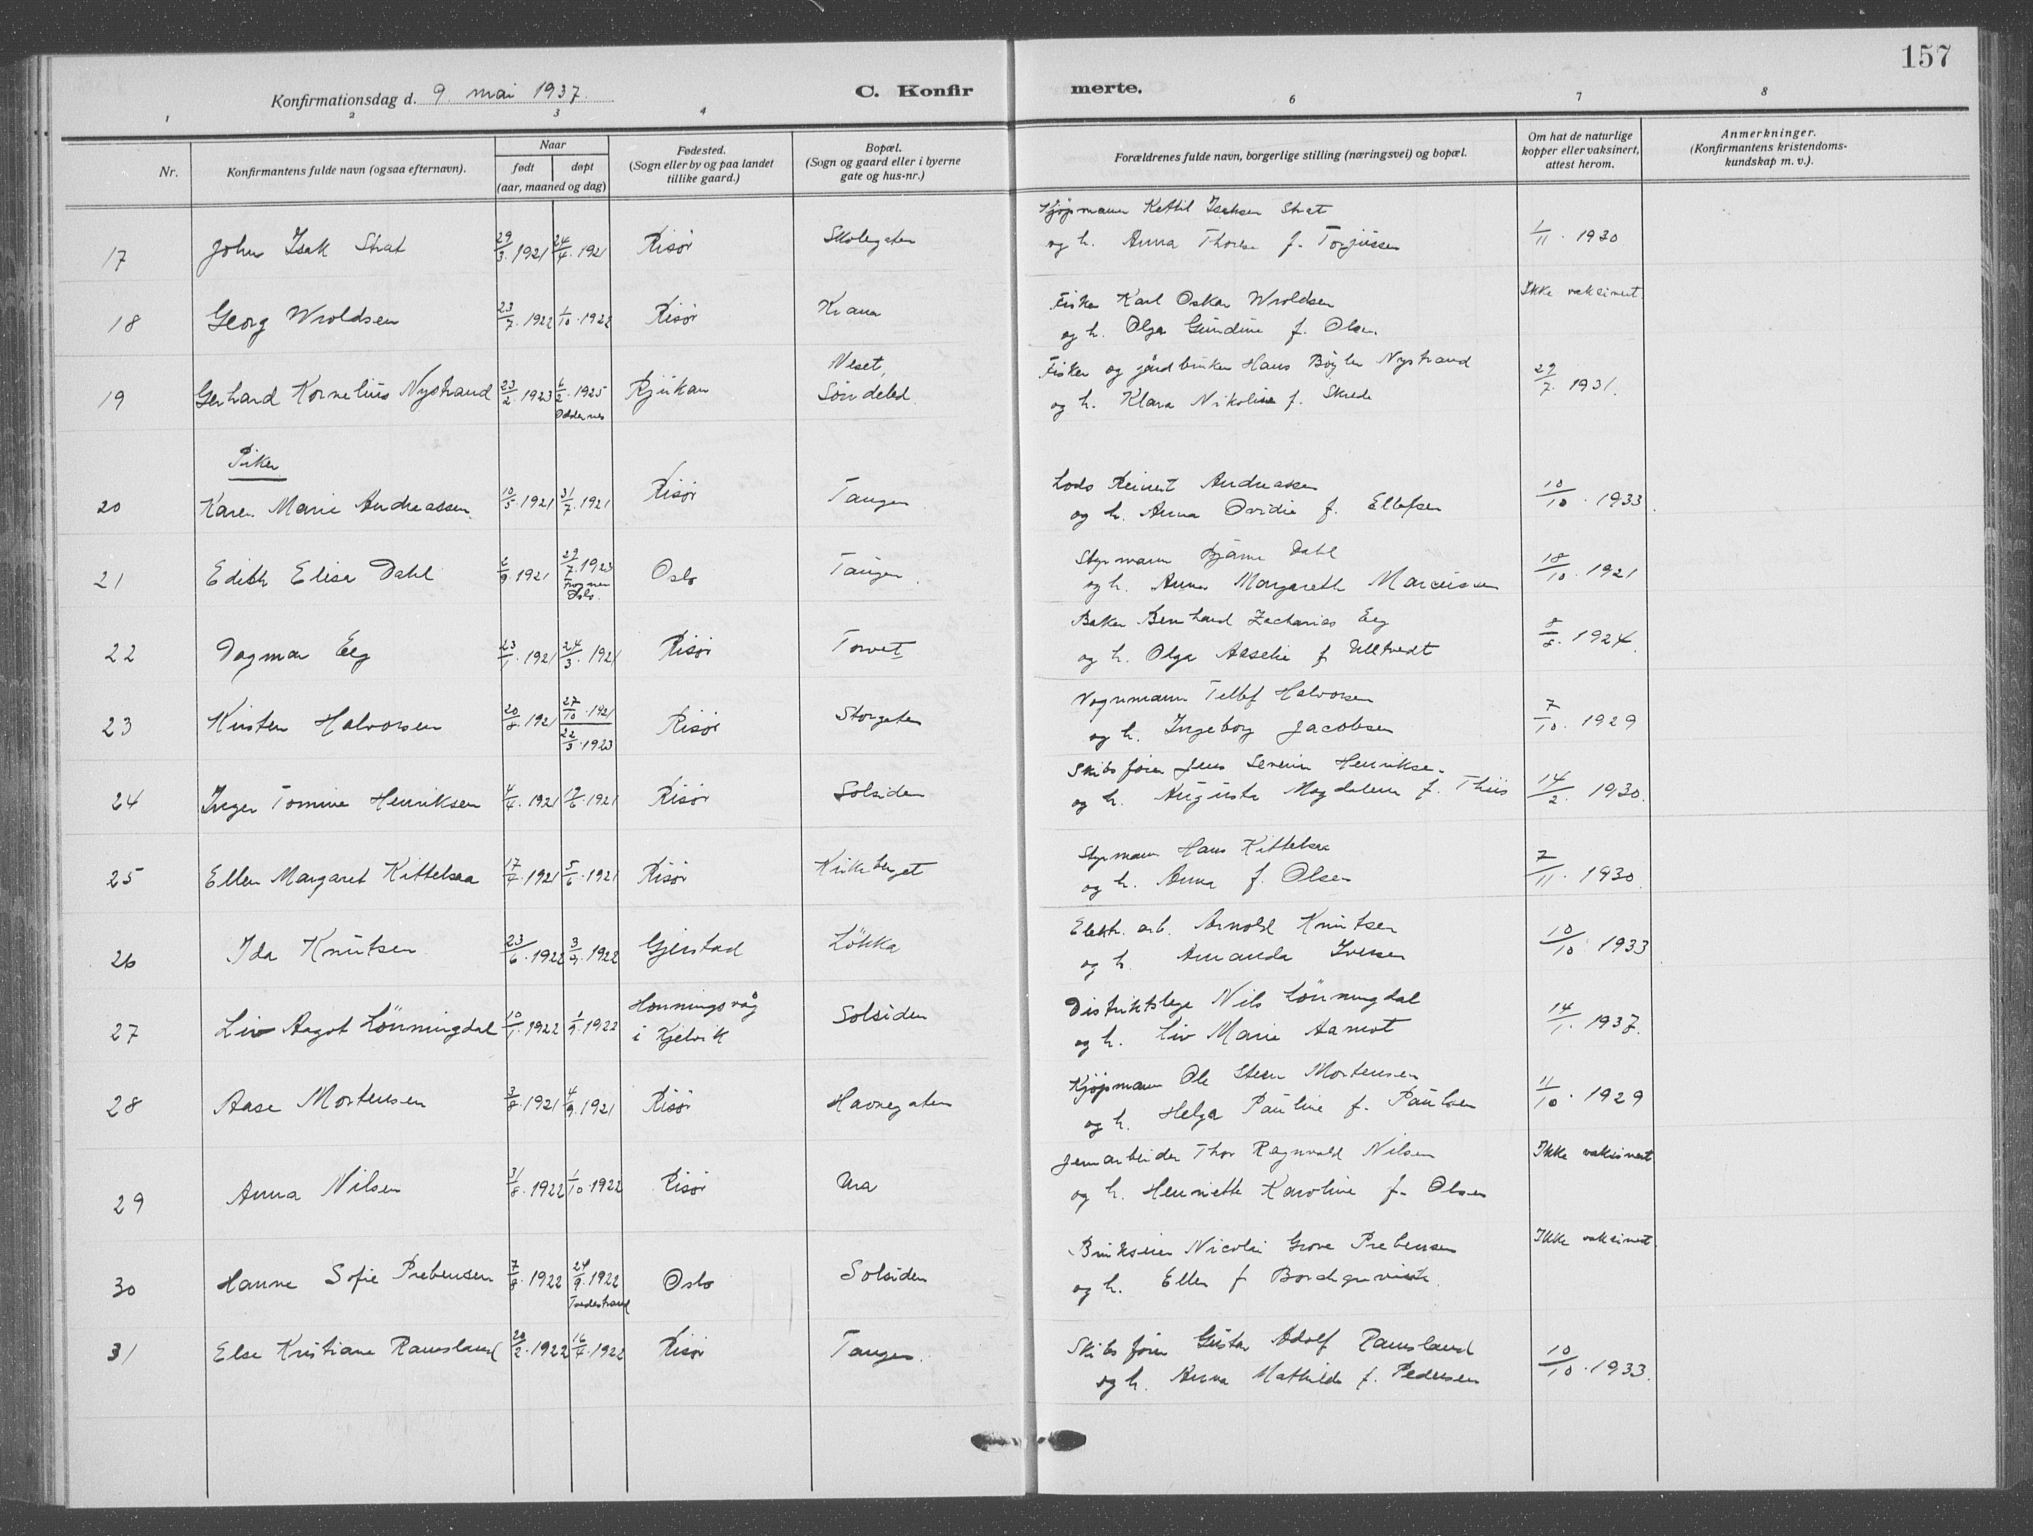 157
Konfirmationsdag d. 9. mai 1937.
C. Konfir merte.
1 2 3 4 6 7 8
Nr. Konfirmantens fulde navn (ogsaa efternavn). Naar født døpt (aar, maaned og dag) Fødested. (Sogn eller by og paa landet tillike gaard.) Bopæl. (Sogn og gaard eller i byerne gate og hus-nr.) Forældrenes fulde navn, borgerlige stilling (næringsvei) og bopæl. Om hat de naturlige kopper eller vaksinert, attest herom. Anmerkninger. (Konfirmantens kristendoms-kundskap m. v.).
17 John Isak Strat 29/3. 1921 24/4. 1921 Risør Skolegaten Kjøpmann Kettil Isaksen Strat
og h. Anna Thorese f. Torjussen 1/11. 1930
18 Georg Wroldsen 23/7. 1922 1/10. 1922 Risør Krana Fisker Karl Oskar Wroldsen Ikke vaksinert.
og h. Olga Gundine f. Olsen
19 Gerhard Kornelius Nystrand 23/2. 1923 6/2. 1925 Oddernes Rjukan Neset, Søndeled. Fisker og gårdbruker Hans Bøgler Nystrand
og h. Klara Nikoline f. Skrede 29/7. 1931.
Piker
20 Karen Marie Andreassen 10/5. 1921 31/7. 1921 Risør Tangen Lods Reinert Andreassen
og h. Anna Ovidie f. Ellefsen 10/10. 1933.
21 Edith Elise Dahl 2/9. 1921 29/7. 1923 Frogner Oslo. Oslo Tangen. Styrmann Bjarne Dahl
og h. Anna Margareth Marcussen 18/10. 1921
22 Dagmar Eeg 23/1. 1921 24/3. 1921 Risør Torvet Baker Bernhard Zacharias Eeg
og h. Olga Aaselie f. Ulltvedt 8/8. 1924.
23 Kirsten Halvorsen 20/8. 1921 27/10. 1921 22/5. 1923 Risør Storgaten Vognmann Tellef Halvorsen
og h. Ingeborg Jacobsen 7/10. 1929
24 Inger Tomine Henriksen 4/4. 1921 12/6. 1921 Risør Solsiden Skibsfører Jens Severin Henriksen
og h. Augusta Magdalene f. Thiis 14/2. 1930.
25 Ellen Margaret Kittelsen 17/4. 1921 5/6. 1921 Risør Kirkeberget Styrmann Hans Kittelsen
og h. Anna f. Olsen 7/11. 1930.
26 Ida Knutsen 23/6. 1922 3/9. 1922 Gjerstad Løkka Elektr. arb. Arnold Knutsen
og h. Amanda Iversen 10/10. 1933
27 Liv Aagot Lönningdal 10/1. 1922 1/9. 1922 Honningsvåg i Kjelvik Solsiden Distriktslege Nils Lönningdal
og h. Liv Marie Aamot 14/1. 1937.
28 Aase Mortensen 3/8. 1921 4/9. 1921 Risør Havnegaten Kjøpmann Ole Steen Mortensen
og h. Helga Pauline f. Paulsen 11/10. 1929
29 Anna Nilsen 31/8. 1922 1/10. 1922 Risør Ura Jernarbeider Thor Ragnvald Nilsen Ikke vaksinert
og h. Henriette Karoline f. Olsen
30 Hanne Sofie Prebensen 7/8. 1922 24/9. 1922 Tvedestrand Oslo Solsiden Brukseier Nicolai Grove Prebensen Ikke vaksinert.
og h. Ellen f. Borchgrevink.
31 Else Kristiane Ramsland 20/2. 1922 16/4. 1922 Risør Tangen. Skibsfører Gustav Adolf Ramsland
og h. Anna Mathilde f. Pedersen 10/10. 1933.